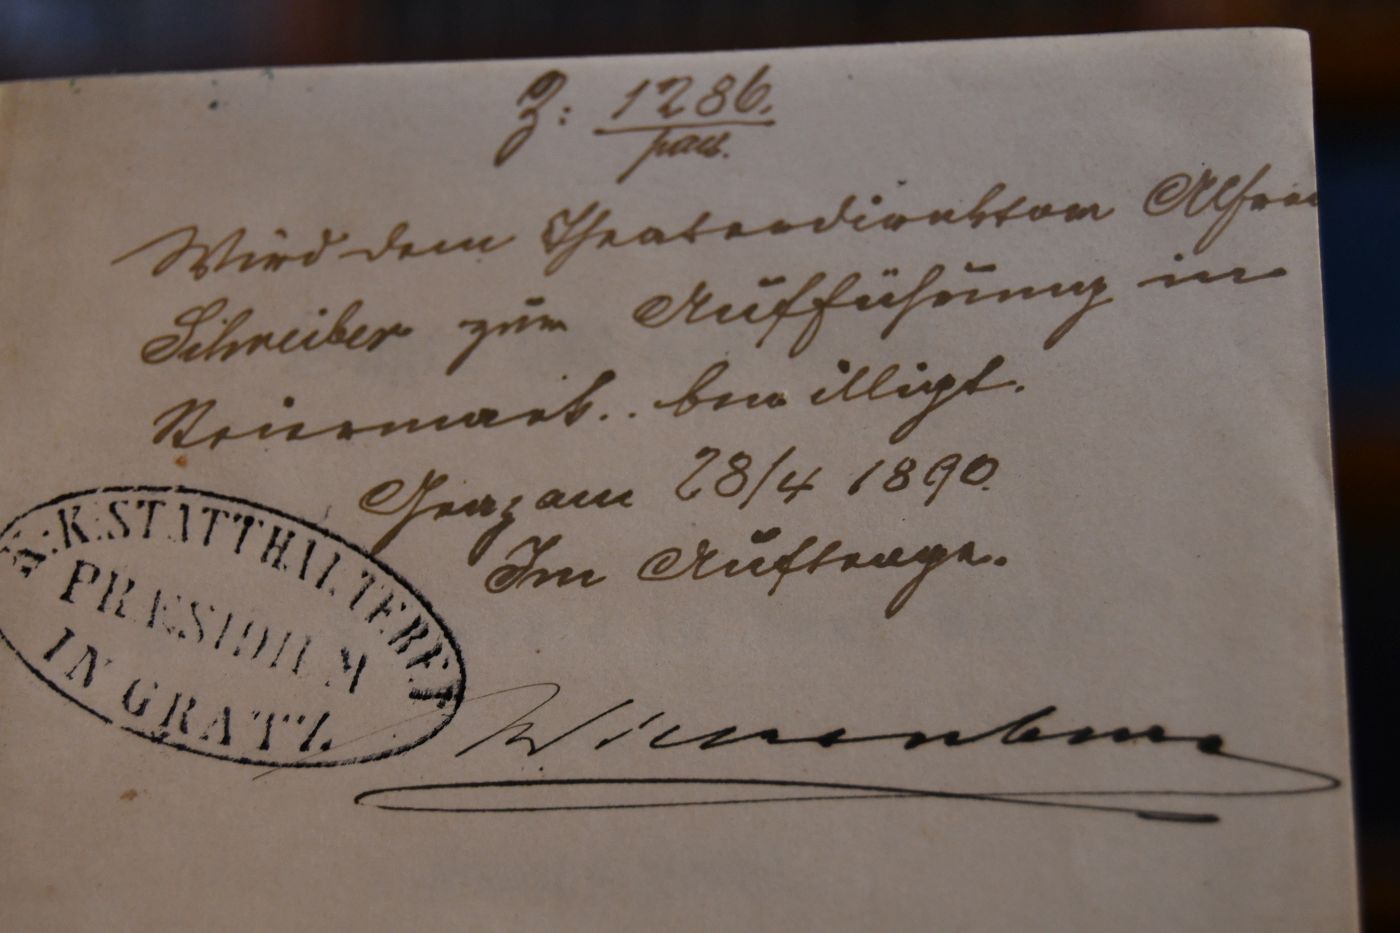 Z: 1286.
praes.
Wird dem Theaterdirektor Alfred
Schreiber zur Aufführung in
Steiermark .. bewilligt.
Graz am 28/4 1890.
Im Auftrage.
K:K:STATTHALTEREI
PRÆSIDIUM
IN GRATZ